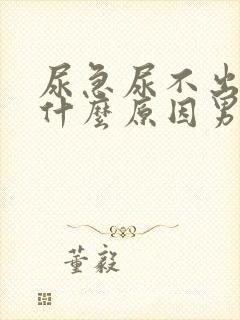 尿急尿不出
什麼原因男
董毅